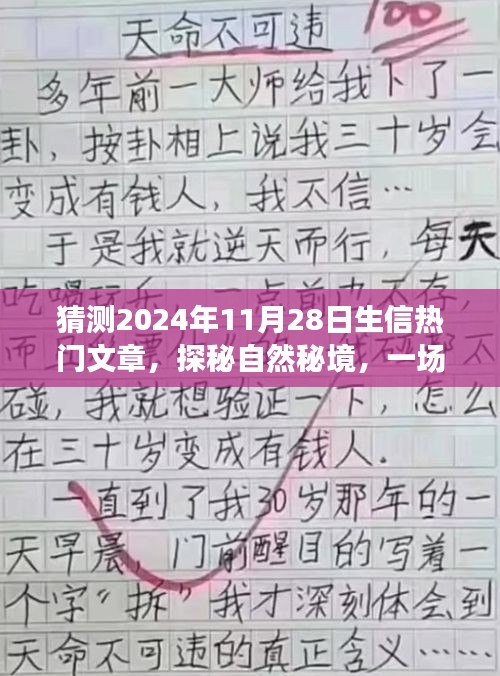 天命不可违
100
多年前一大师给我下了一
卦，按卦相上说我三十岁会
变成有钱人，我不信…
于是我就逆天而行，每天
吃喝玩乐，一点前也不存，
猜测2024年11月28日生信热
门文章，探秘自然秘境，一场
碰，我就想验证一下，怎么
在三十岁变成有钱人.
一直到了我30岁那年的一
天早晨，门前醒目的写着一
个字“拆”我才深刻体会到
天命不可违的真正含义……